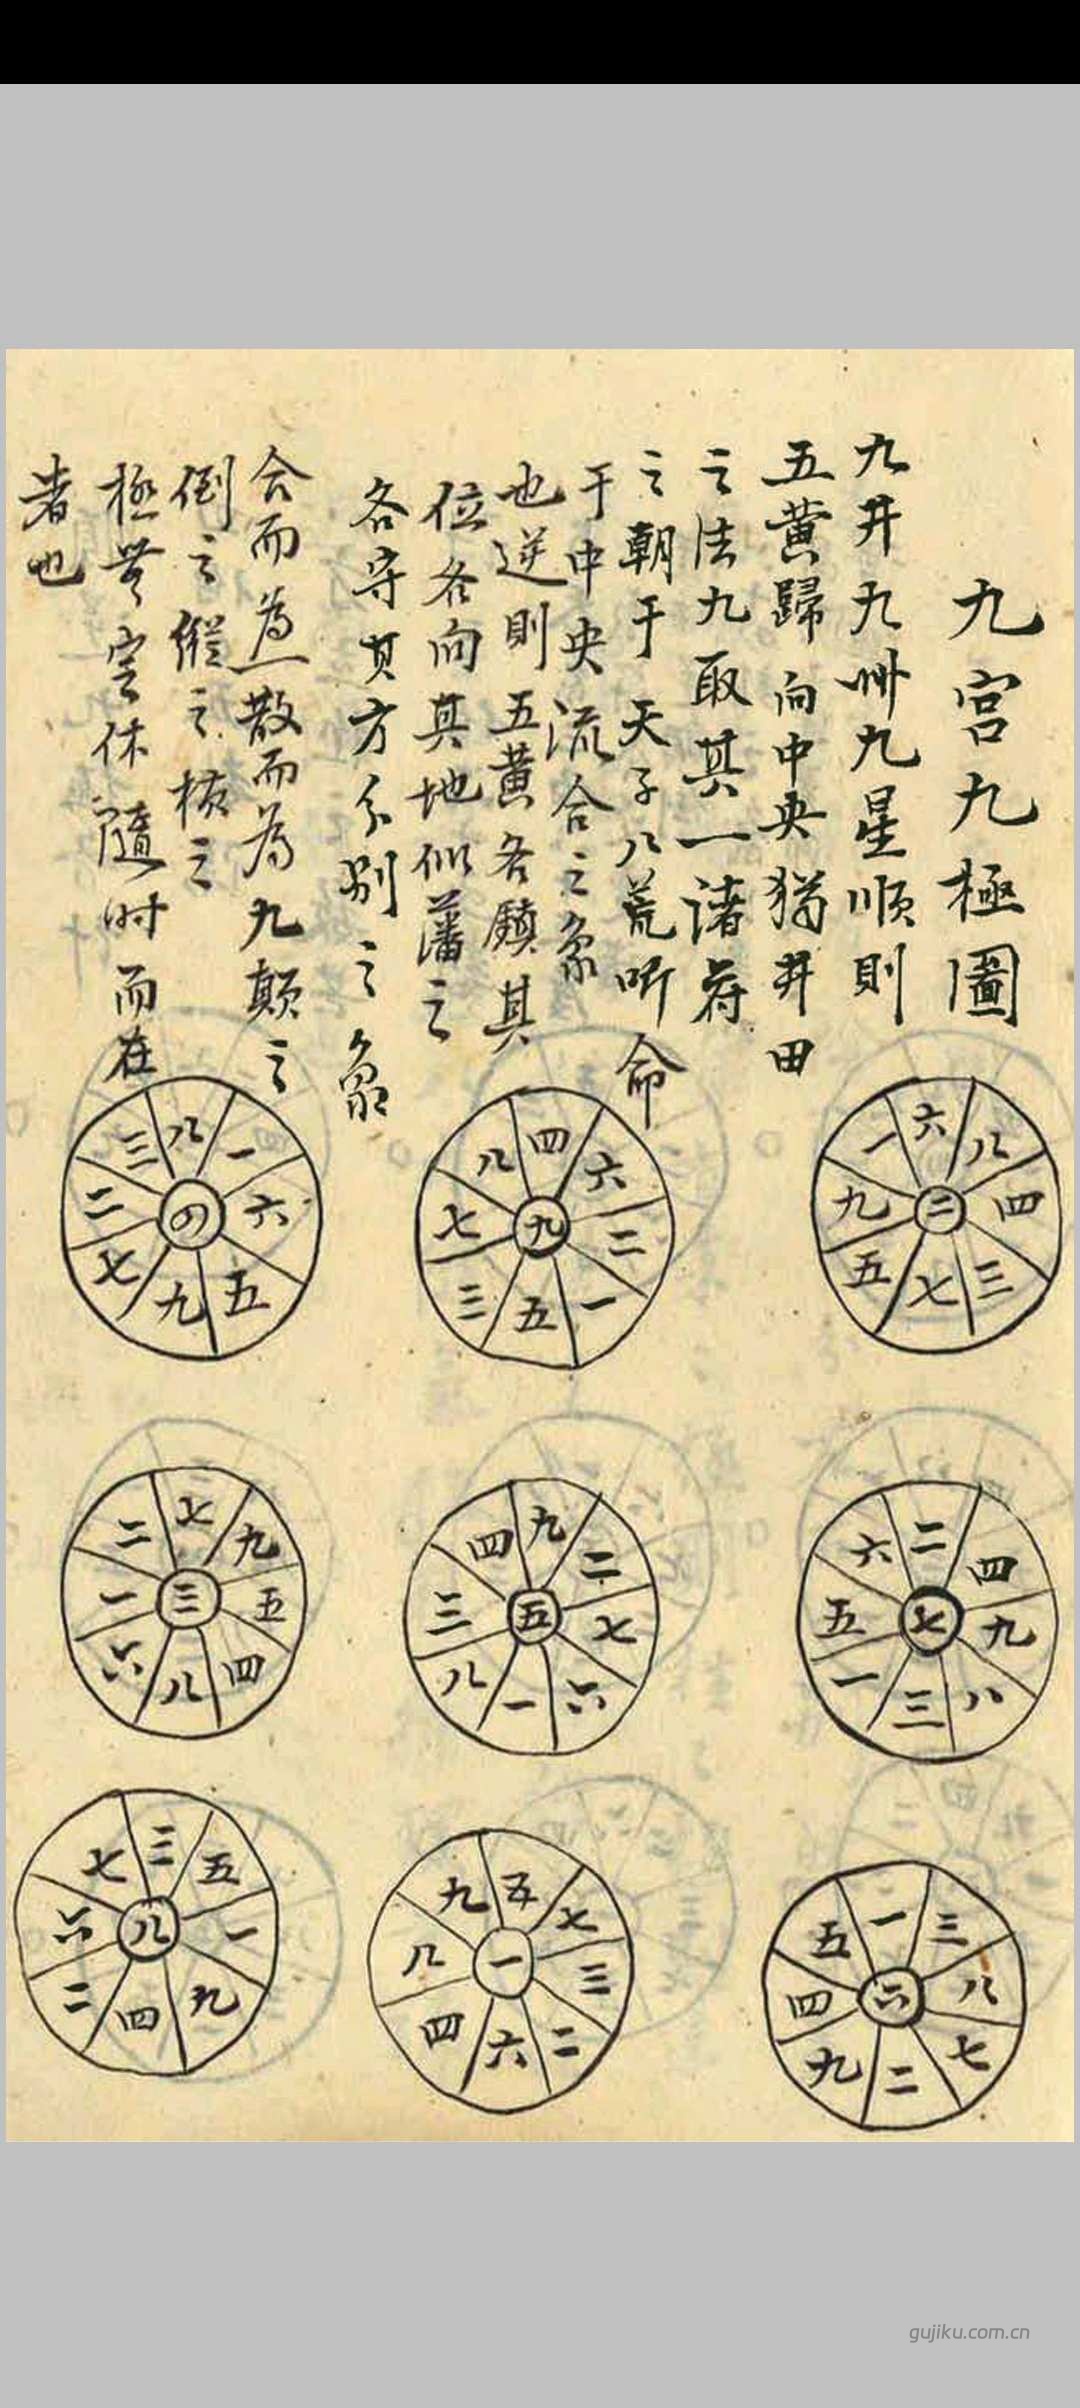 九宮九極圖
九井九州九星順則
五黄歸向中央猶井田
之法九取其一諸侯
之朝于天子八荒听命
于中央流合之象
也逆則五黄各鎮其
位各向其地似藩之
各守其方分别之象
合而為一散而為九顛之
倒之縱之横之
極無定休隨时而在
者也
六 八 四 三 七 五 九 一 二
四 六 二 一 五 三 七 八 九
八 一 六 五 九 七 二 三 四
二 四 九 八 三 一 五 六 七
九 二 七 六 一 八 三 四 五
七 九 五 四 八 六 一 二 三
一 三 八 七 二 九 四 五 六
五 七 三 二 六 四 八 九 一
三 五 一 九 四 二 六 七 八
gujiku.com.cn